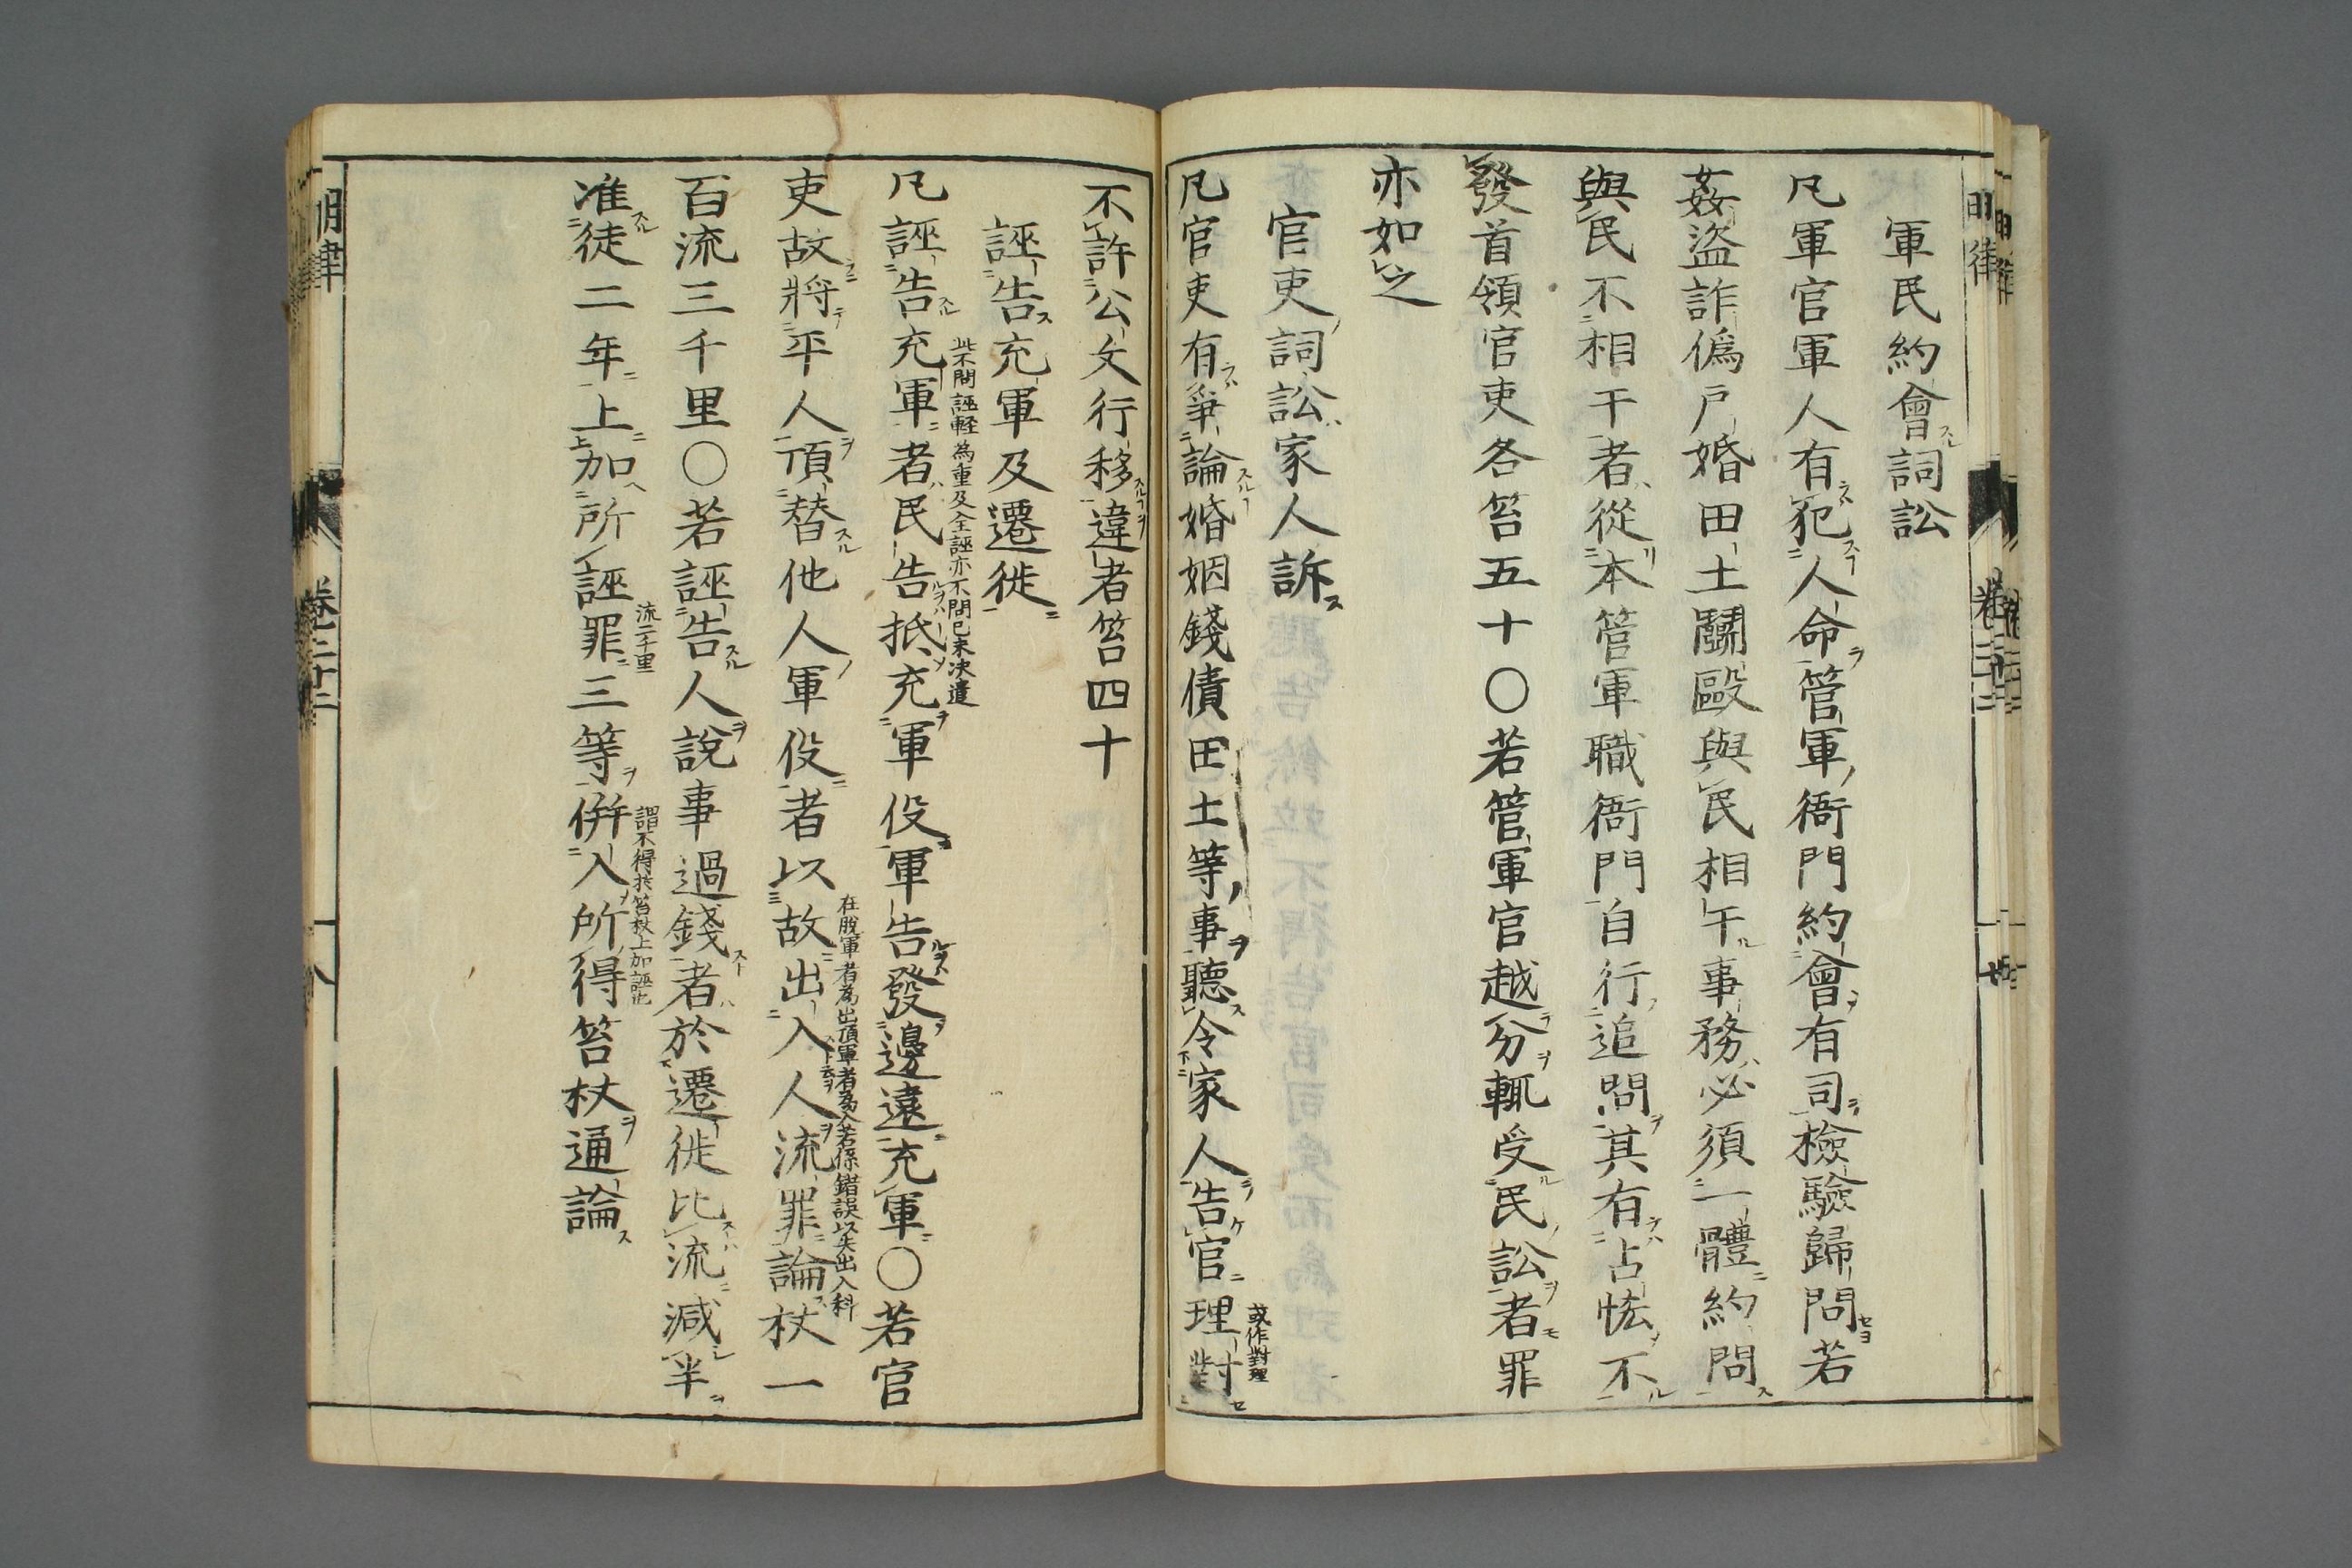 軍民約會詞訟
凡軍官軍人有犯人命管軍衙門約會有司檢驗歸問若
姦盜詐偽戶婚田土鬪毆與民相干事務必須一體約問
與民不相干者從本管軍職衙門自行追問其有占恡不
發首領官吏各笞五十〇若管軍官越分輒受民訟者罪
亦如之
官吏詞訟家人訴
凡官吏有爭論婚姻錢債田土等事聽令家人告官理對
或作對理
不許公文行移違者笞四十
誣告充軍及遷徙
此不問誣軽為重及全誣亦不問已未決遣
凡誣告充軍者民告抵充軍役軍告發邊遠充軍〇若官
吏故將平人頂替他人軍役者以故出入人流罪論杖一
在脫軍者為出頂軍者為入若係錯誤以失出入科
百流三千里〇若誣告人說事過錢者於遷徙比流減半
准徒二年上加所誣罪三等併入所得笞杖通論
流二千里
謂不得於笞杖上加誣也
明律
卷二十二
八